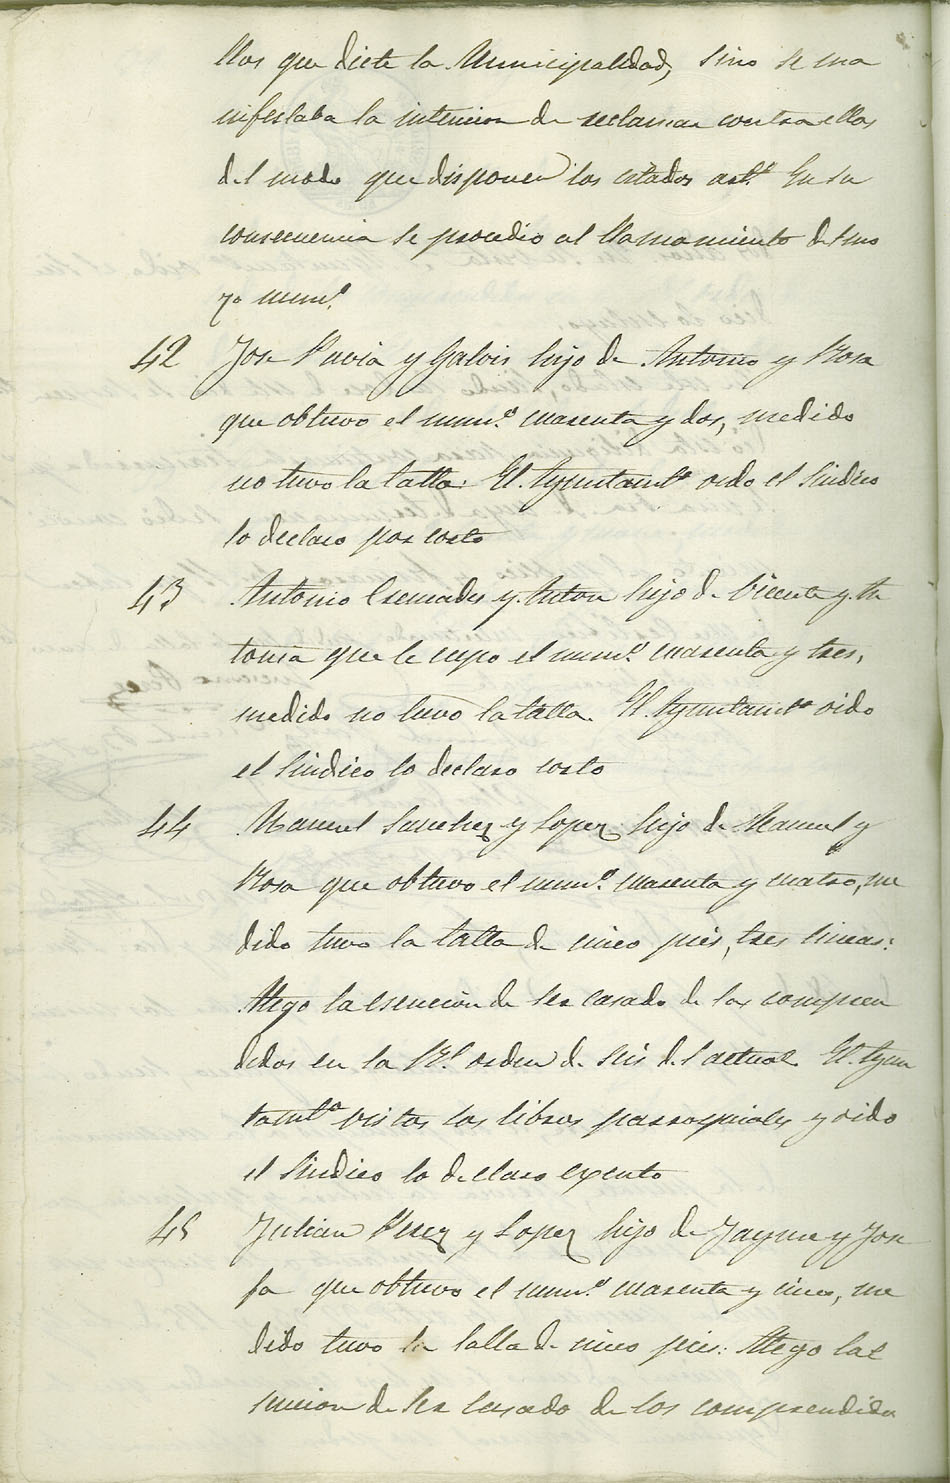 llos que diete la Municipalidad, sino se ma
nifestaba la intencion de reclamar contra ellos
del modo que disponen los citados artº. En su
consecuencia se procedio al llamamiento de
numº.
42 Jose Pavia y Galvis hijo de Antonio y Rosa
que obtuvo el numº. cuarenta y dos, medido
no tuvo la talla: El Ayuntamtº oido el Sindico
lo declaro por corto
43 Antonio Cremades y Anton hijo de Vicente y An
tonia que le cupo el numº. cuarenta y tres,
medido no tuvo la talla. El Ayuntamtº oido
el Sindico lo declaro corto
44 Manuel Sanchez y Lopez hijo de Manuel y
Rosa que obtuvo el numº. cuarenta y cuatro, me
dido tuvo la talla de cinco pies, tres lineas:
Alego la esencion de ser casado de los compren
didos en la Rl. orden de seis del actual. El Ayun
tamtº vistos los libros parroquiales y oido
el Sindico lo declaro exento
45 Julian Perez y Lopez hijo de Jayme y Jose
fa que obtuvo el numº. cuarenta y cinco, me
dido tuvo la talla de cinco pies: Alego la e
sencion de ser casado de los comprendidos